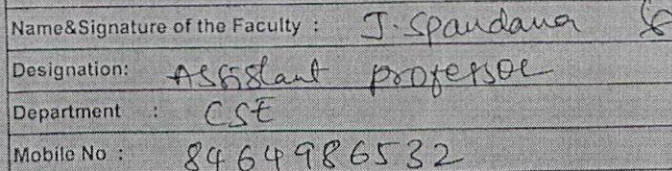 Name&Signature of the Faculty : J. Spandana
Designation: Assistant professor
Department : CSE
Mobile No : 8464986532